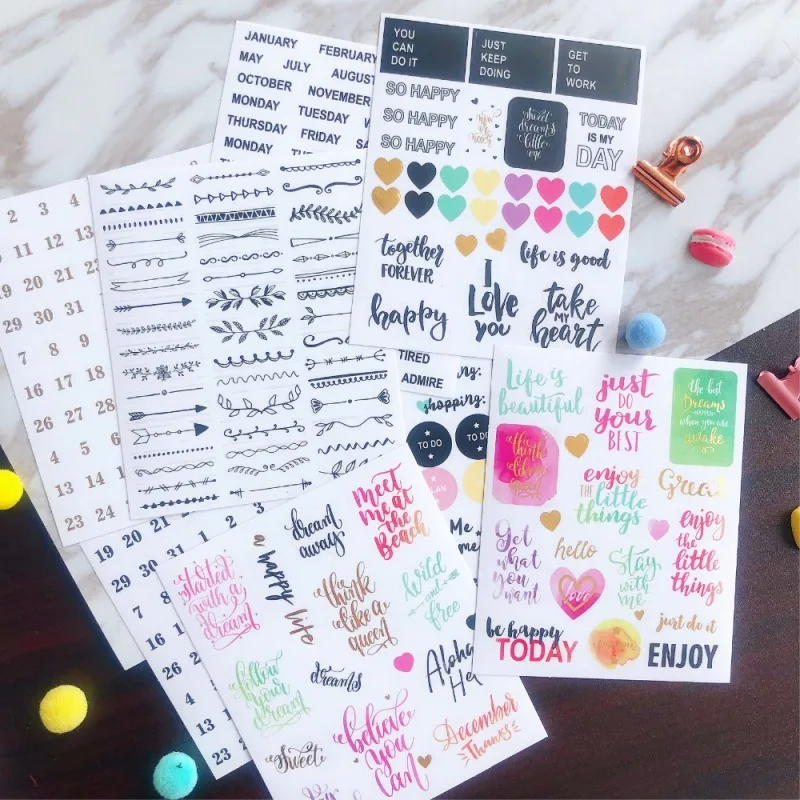 JANUARY FEBRUARY
MAY JULY AUGUST
OCTOBER NOVEMBER
MONDAY TUESDAY
THURSDAY FRIDAY
MONDAY TUESDAY
YOU
CAN
DO IT
JUST
KEEP
DOING
GET
TO
WORK
SO HAPPY
SO HAPPY
SO HAPPY
sweet
dreams
little
one
TODAY
IS MY
DAY
together
FOREVER
life is good
happy
I
Love
you
take
MY
heart
2 3 4
11 12 13
19 20 21
29 30 31
7 8 9
16 17 18
26 27 28
4 5 6
13 14
23 24
TIRED
ADMIRE
shopping:
TO DO
TO DO
Life is
beautiful
just
DO
your
BEST
the best
Dreams
HAPPEN
when you are
awake
enjoy
THE little
things
Get
what
you
want
hello
Stay
with
me
enjoy
the
little
things
love
just do it
be happy
TODAY
ENJOY
started
with a
dream
a happy life
dream
away
meet
me at
the
Beach
think
like a
queen
wild
and
free
follow
your
dream
dreams
Aloha
sweet
believe
you
can
December
Thanks
1 2 3
19 20
29 30
7 8
16 17
26 27
4
13
23